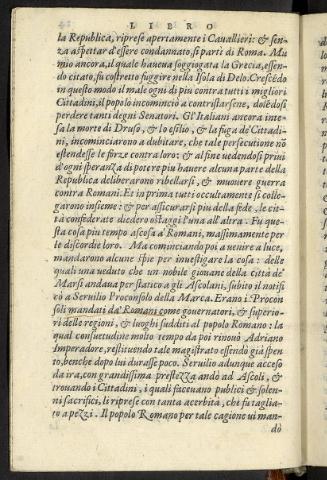 LIBRO
la Republica, riprese apertamente i Cauallieri: & sen-
za aspettar d'essere condannato, si partì di Roma. Mu
mio ancora, il quale haueua soggiogata la Grecia, essen-
do citato, fu costretto fuggire nella Isola di Delo. Crescēdo
in questo modo il male ogni dì piu contra tutti i migliori
Cittadini, il popolo incominciò a contristarsene, dolēdosi
perdere tanti degni Senatori. Gl'Italiani ancora inte-
sa la morte di Druso, & lo esilio, & la fuga de' Cittadi-
ni, incominciarono a dubitare, che tale persecutione nō
estendesse le forze contra loro: & al fine uedendosi priui
d'ogni speranza di potere piu hauere alcuna parte della
Republica deliberarono ribellarsi, & muouere guerra
contra Romani. Et in prima tutti occultamente si collo-
garono insieme: & per assicurarsi piu della fede, le cit-
tà confederate diedero ostaggi l'una all'altra. Fu que-
sta cosa piu tempo ascosa a' Romani, massimamente per
le discordie loro. Ma cominciando poi a uenire a luce,
mandarono alcune spie per inuestigare la cosa: delle
quali una ueduto che un nobile giouane della città de'
Marsi andaua per statico a gli Ascolani, subito il notifi
cò a Seruilio Proconsolo della Marca. Erano i Procon
soli mandati da' Romani come gouernatori, & superio-
ri delle regioni, & luoghi sudditi al popolo Romano: la
qual consuetudine molto tempo da poi rinouò Adriano
Imperadore, restituendo tale magistrato essendo già spen
to, benche dopo lui durasse poco. Seruilio adunque acceso
da ira, con grandissima prestezza andò ad Ascoli, &
trouando i Cittadini, i quali faceuano publici & solen-
ni sacrifici, li riprese con tanta acerbità, che fu taglia-
to a pezzi. Il popolo Romano per tale cagione ui man-
dò